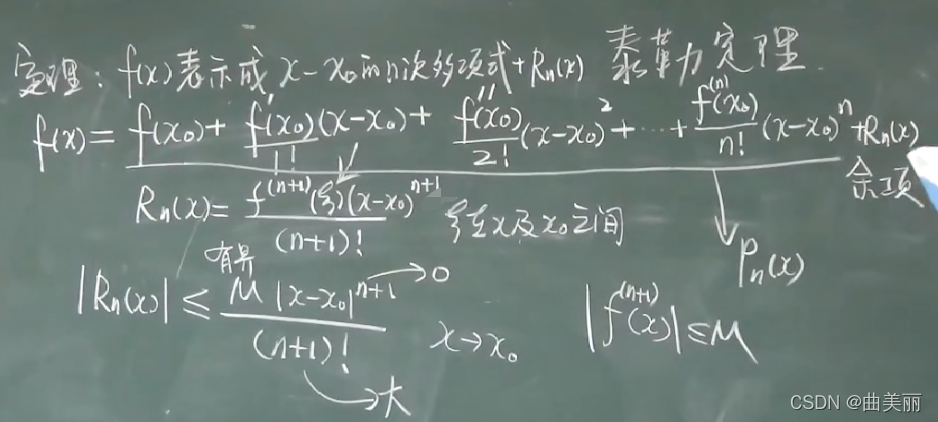 定理: f(x)表示成 x-x₀的n次多项式+Rn(x) 泰勒定理
f(x)= f(x₀)+ f'(x₀)/1! (x-x₀)+ f''(x₀)/2! (x-x₀)²+…+ f⁽ⁿ⁾(x₀)/n! (x-x₀)ⁿ+Rn(x)
余项
Rn(x)= f⁽ⁿ⁺¹⁾(ξ)(x-x₀)ⁿ⁺¹/(n+1)! ξ在x及x₀之间
Pn(x)
有界
|Rn(x)| ≤ M|x-x₀|ⁿ⁺¹/(n+1)! →0 x→x₀ |f⁽ⁿ⁺¹⁾(x)|≤M
→大
CSDN @曲美丽